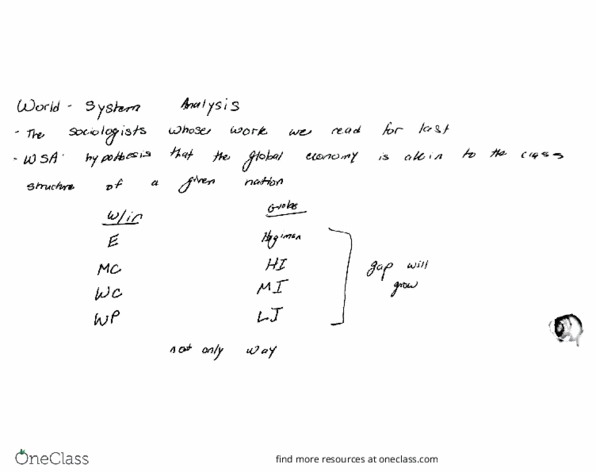 World - System Analysis
- The sociologists whose work we read for last
- WSA: hypothesis that the global economy is akin to the class
structure of a given nation
W/in Global
E Hegimon
MC HI
WC MI
WP LI
gap will
grow
not only way
OneClass
find more resources at oneclass.com